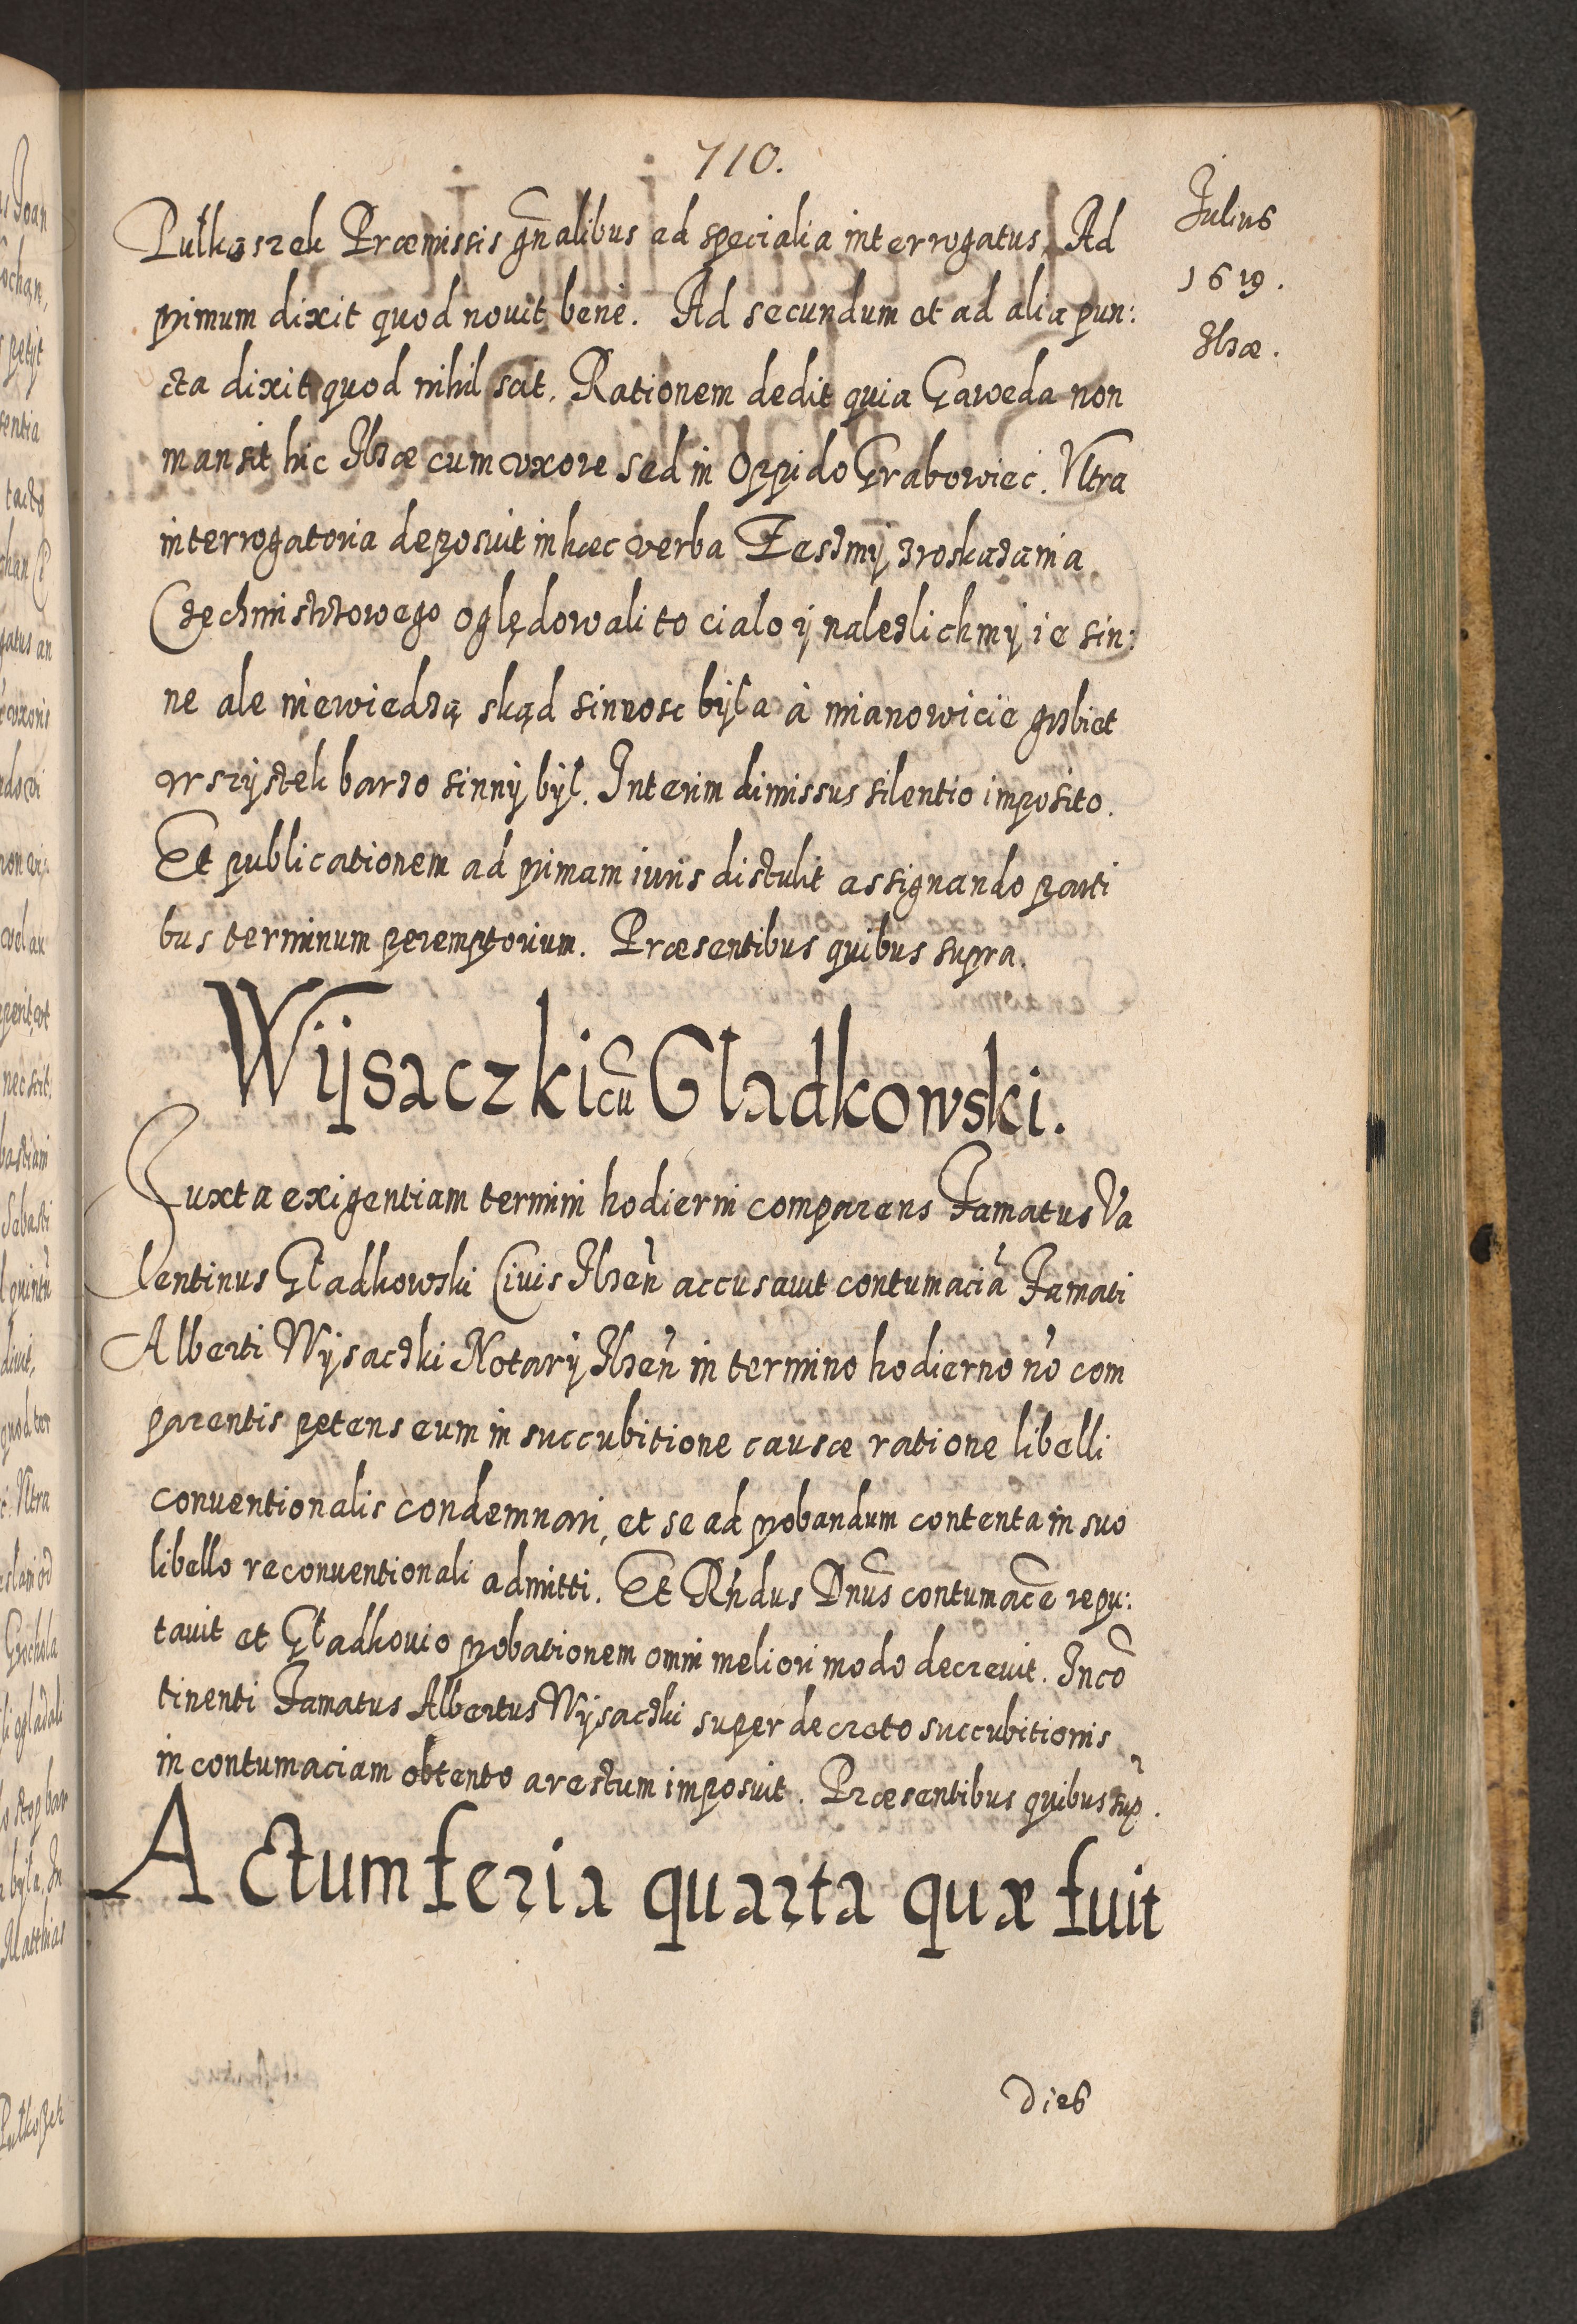 710.
Julius
1619.
Ilzæ.
Pułkoszek Præmissis gñalibus ad specialia interrogatus. Ad
primum dixit quod nouit bene. Ad secundum et ad alia pun:
cta dixit quod nihil scit. Rationem dedit quia Gaweda non
mansit hic Ilzæ cum vxore sed in Oppido Grabowiec. Vltra
interrogatoria deposuit in hæc verba Zesmy z roskazania
Czechmistrzowego oględowali to cialo ÿ nalezlichmÿ ie sin:
ne ale niewiedzą skąd sinnosc bÿła à mianowicie grzbiet
wszÿstek barzo sinnÿ bÿł. Interim dimissus silentio imposito.
Et publicationem ad primam iuris distulit assignando parti
bus terminum peremptorium. Præsentibus quibus supra.
Wÿsaczki cũ Gładkowski.
Juxta exigentiam termini hodierni comparens Famatus Va
lentinus Gładkowski Ciuis Ilzeñ accusauit contumaciã Famati
Alberti Wÿsaczki Notarÿ Ilzeñ in termino hodierno nõ com
parentis petens eum in succubitione causæ ratione libelli
conuentionalis condemnari, et se ad probandum contenta in suo
libello reconuentionali admitti. Et Rñdus Dnũs contumacẽ repu:
tauit et Gładkouio probationem omni meliori modo decreuit. Incõ
tinenti Famatus Albertus Wÿsaczki super decreto succubitionis
in contumaciam obtento arestum imposuit. Præsentibus quibus sup̃.
Actum feria quarta quæ fuit
Dies